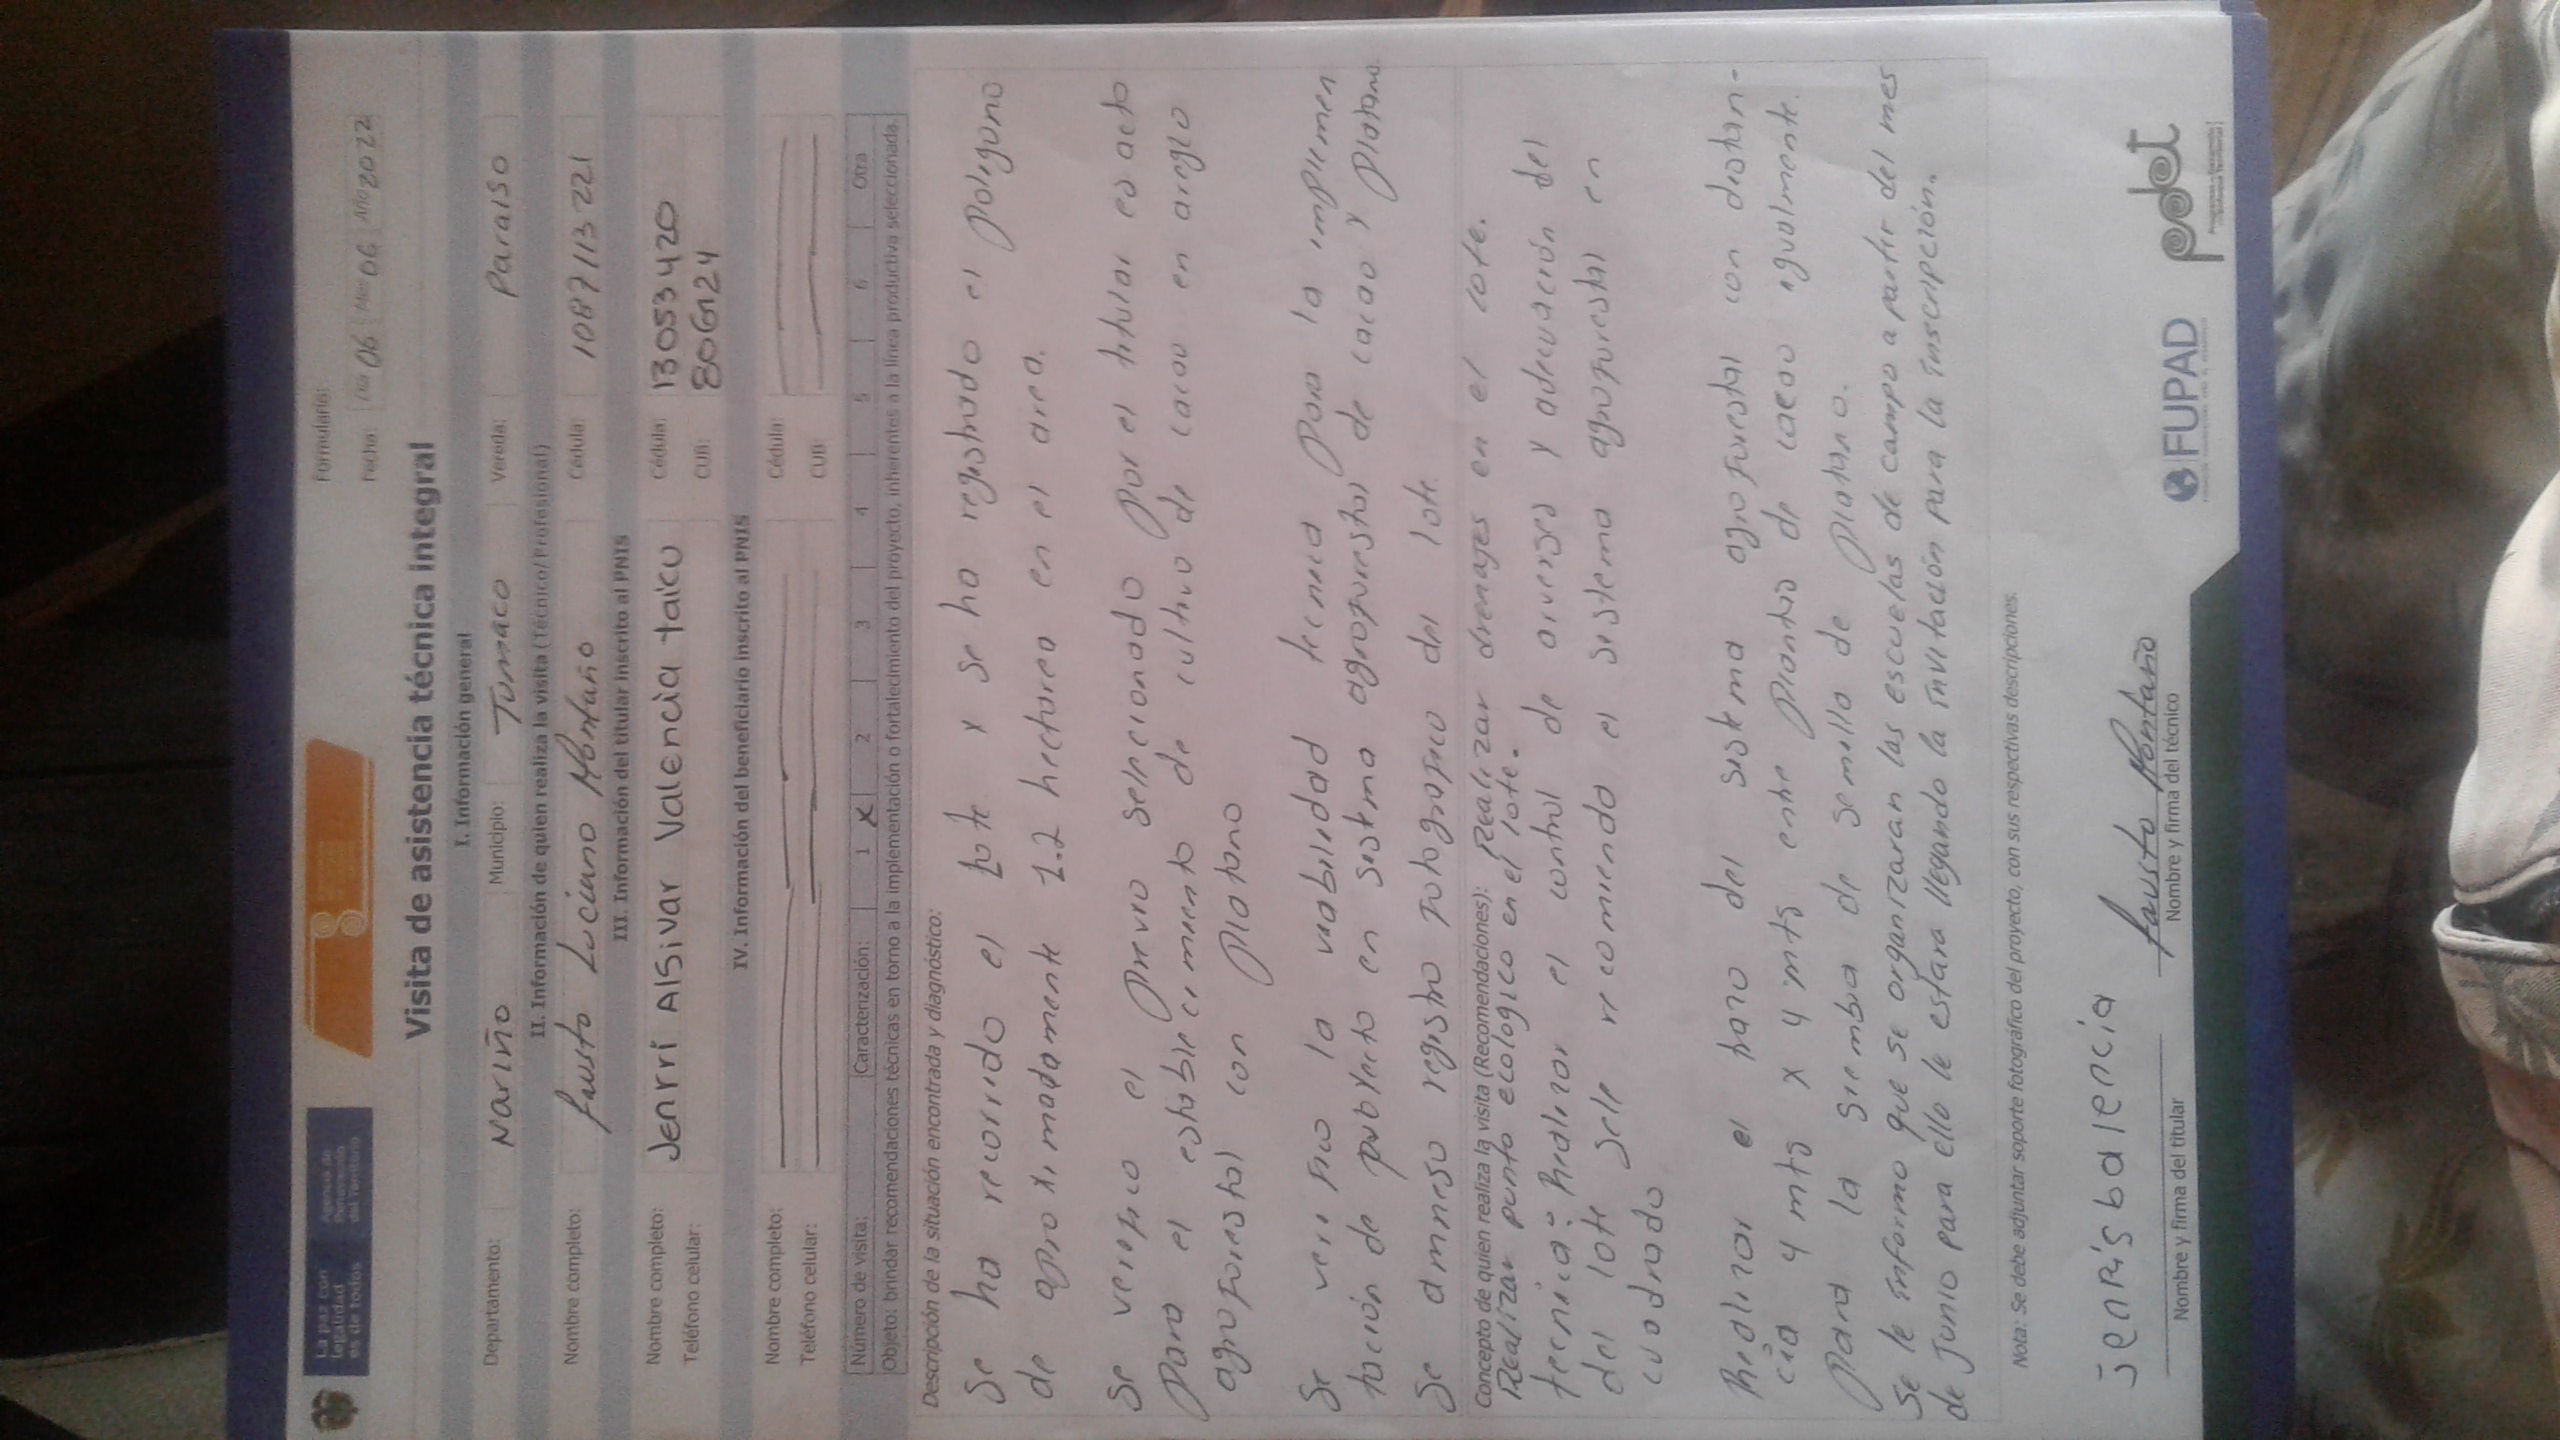 La paz con
legalidad
es de todos
Agencia de
Renovación
del Territorio
Formulario:
Fecha: Día 06 Mes 06 Año 2022
Visita de asistencia técnica integral
I. Información general
Departamento: Nariño Municipio: Tumaco Vereda: Paraiso
II. Información de quien realiza la visita (Técnico/Profesional)
Nombre completo: fausto Luciano Montaño Cédula: 1087113221
III. Información del titular inscrito al PNIS
Nombre completo: Jenrri Alsivar Valencia taicu Cédula: 13053420
Teléfono celular: CUB:
IV. Información del beneficiario inscrito al PNIS
Nombre completo: Cédula:
Teléfono celular: CUB:
Número de visita: Caracterización: 1 X 2 3 4 5 6 Otra
Objeto: brindar recomendaciones técnicas en torno a la implementación o fortalecimiento del proyecto, inherentes a la línea productiva seleccionada.
Descripción de la situación encontrada y diagnóstico:
Se ha recorrido el Lote y se ha registrado el poligono
de aproximadamente 1.2 hectarea en el area.
Se verifico el previo selecionado por el titular es acto
para el establecimiento de cultivo de cacao en areglo
agroforestal con platano
Se verifico la viabilidad tecnica para la implemen
tación de proyecto en sistema agroforestal de cacao y platano.
Se amneso registro fotografico del lote.
Concepto de quien realiza la visita (Recomendaciones): Realizar drenajes en el lote.
Realizar punto ecologico en el lote.
tecnica: Realizar el control de arvenses y adecuación del
del lote sele recomienda el sistema agroforestal en
cuadrado
Realizar el trazo del sistema agroforestal con distan-
cia 4 mts x 4 mts entre plantio de cacao igualmente.
para la siembra de semilla de platano.
Se le informo que se organizaran las escuelas de campo a partir del mes
de Junio para ello le estara llegando la invitación para la inscripción.
Nota: Se debe adjuntar soporte fotográfico del proyecto, con sus respectivas descripciones.
Jenris balencia fausto Montaño
Nombre y firma del titular Nombre y firma del técnico
FUPAD pdet